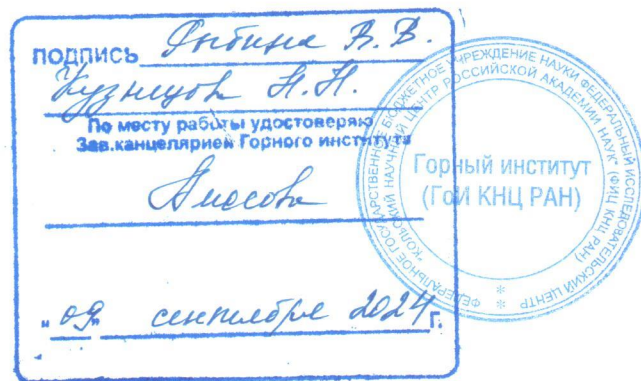 ПОДПИСЬ Рыбина В. В.
Кузнецов Н. Н.
По месту работы удостоверяю
Зав.канцелярией Горного института
"09" сентября 2024 г.
ФЕДЕРАЛЬНОЕ ГОСУДАРСТВЕННОЕ БЮДЖЕТНОЕ УЧРЕЖДЕНИЕ НАУКИ ФЕДЕРАЛЬНЫЙ ИССЛЕДОВАТЕЛЬСКИЙ ЦЕНТР
"КОЛЬСКИЙ НАУЧНЫЙ ЦЕНТР РОССИЙСКОЙ АКАДЕМИИ НАУК" (ФИЦ КНЦ РАН)
Горный институт
(ГоИ КНЦ РАН)